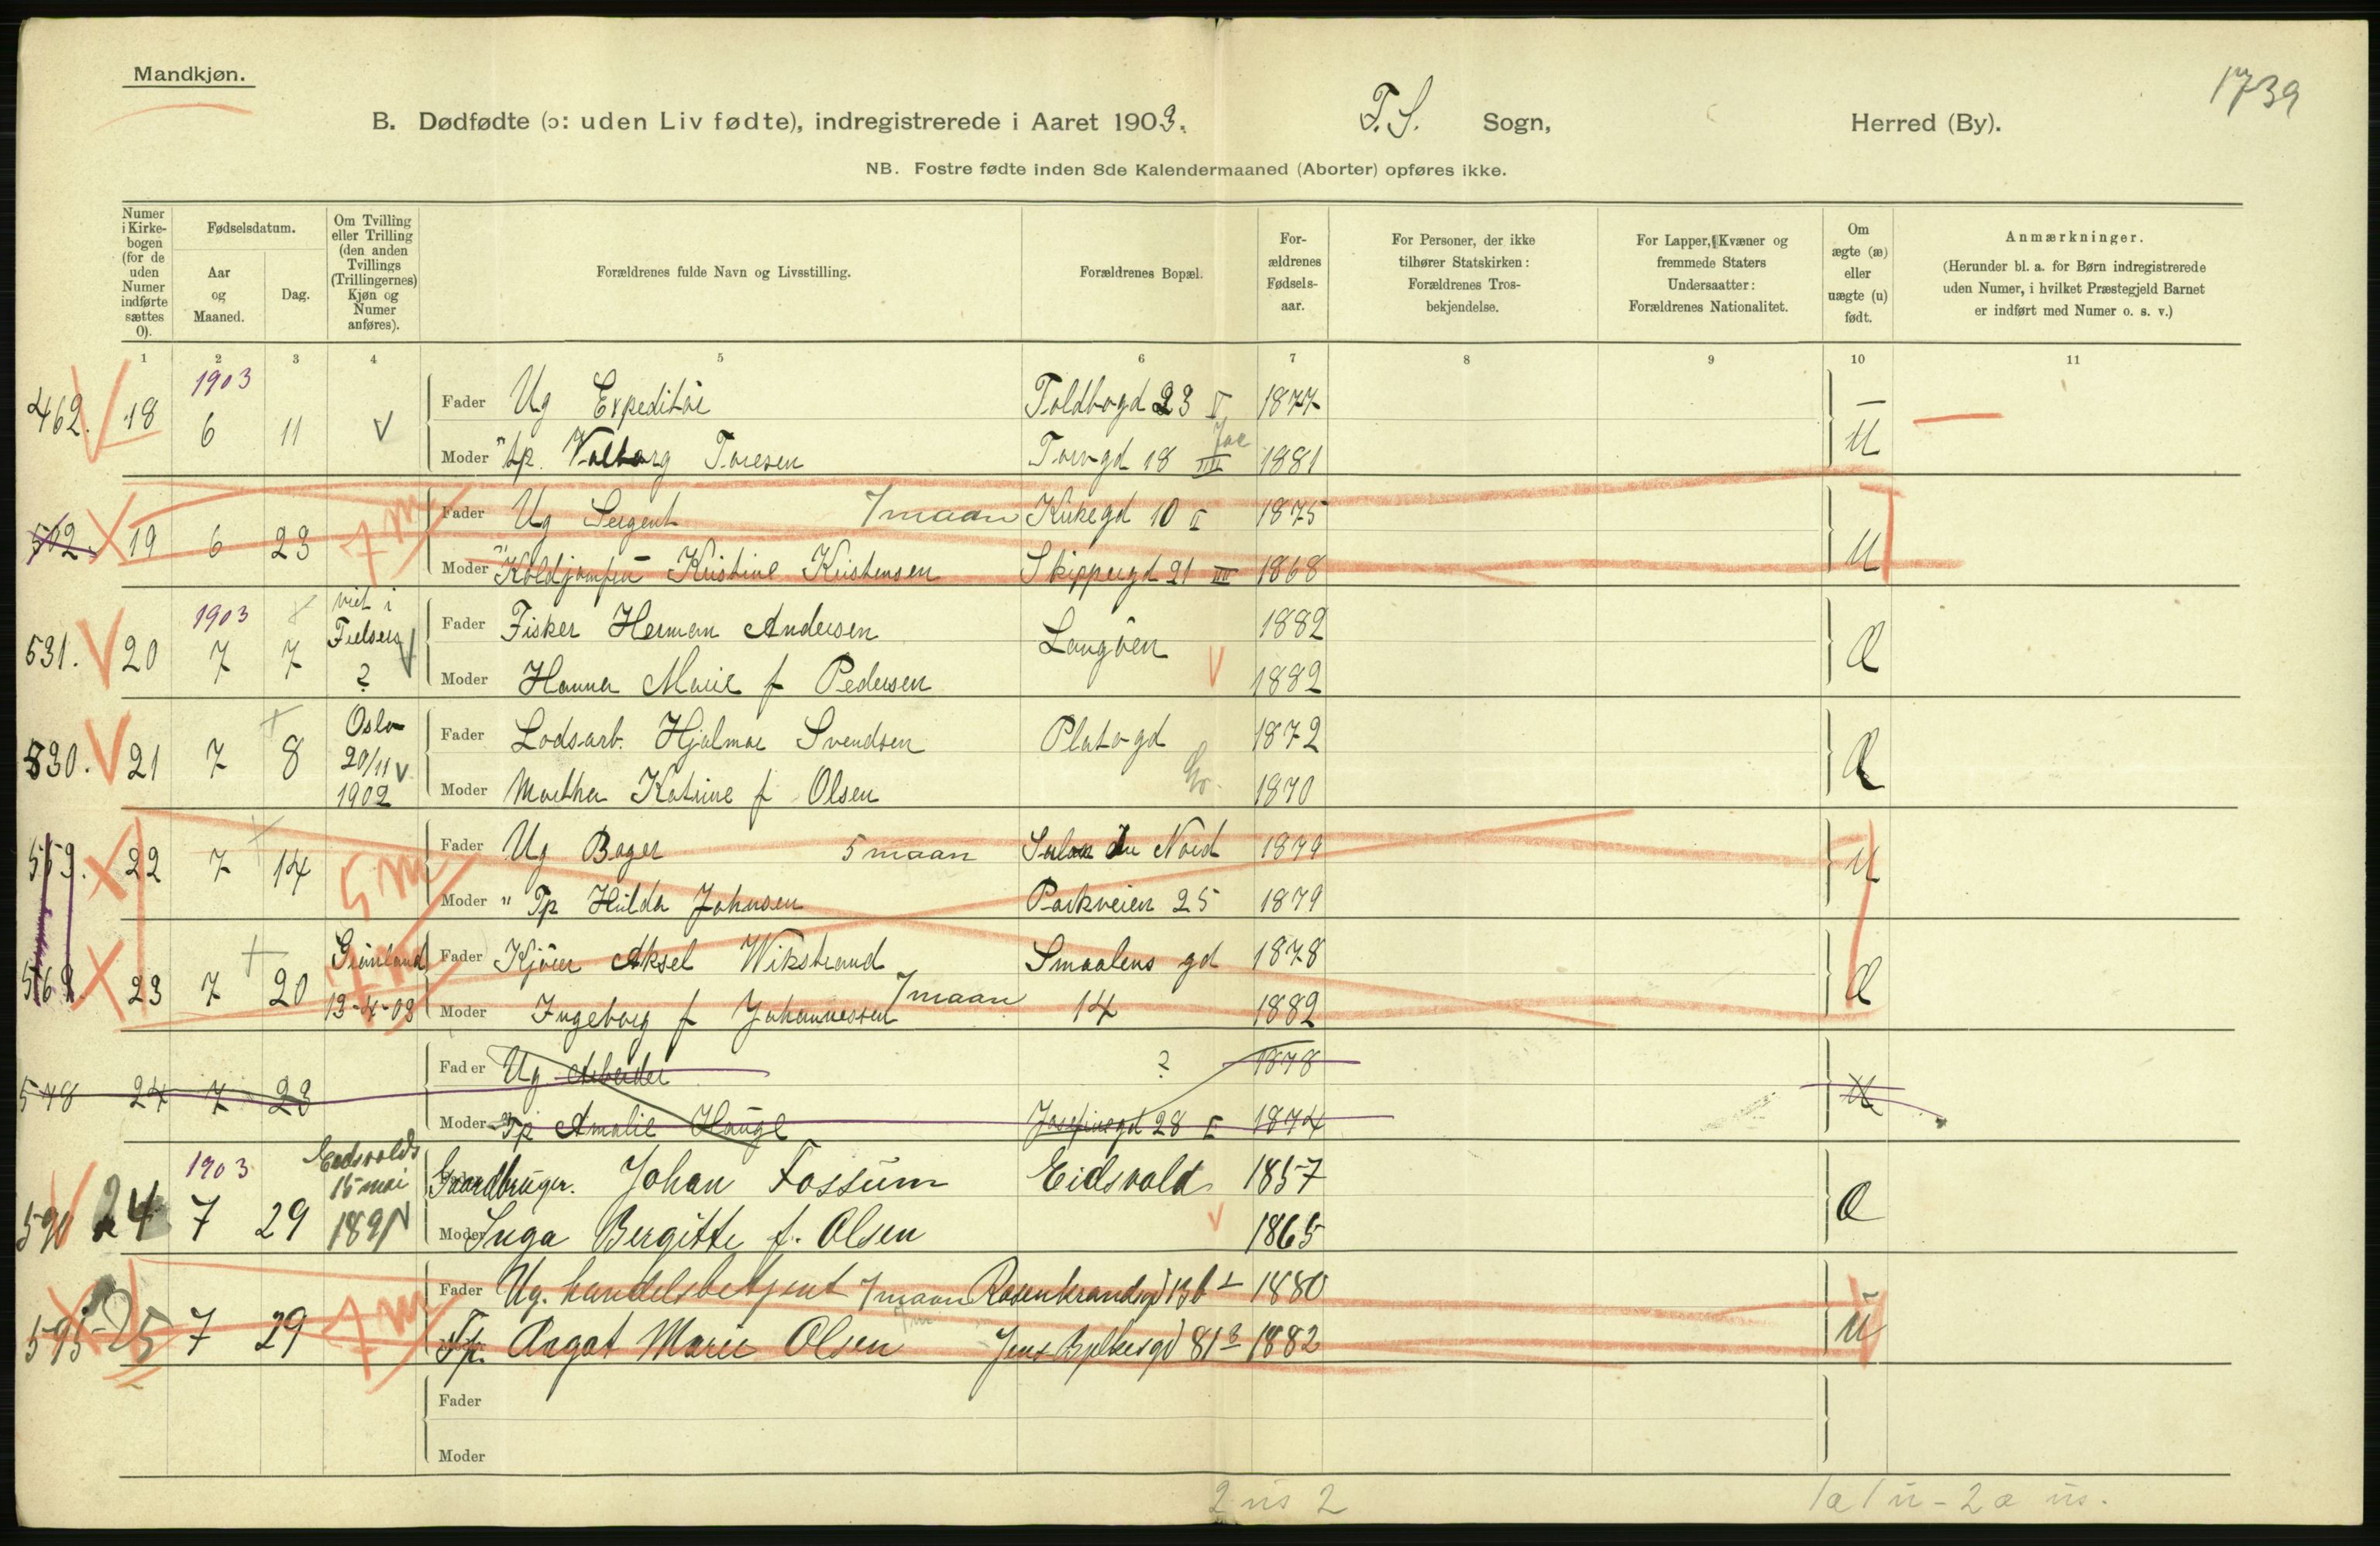 Mandkjøn.
1739
B. Dødfødte (ɔ: uden Liv fødte), indregistrerede i Aaret 1903. F.S. Sogn, Herred (By).
NB. Fostre fødte inden 8de Kalendermaaned (Aborter) opføres ikke.
Numer i Kirke-bogen (for de uden Numer indførte sættes 0).
Fødselsdatum.
Aar og Maaned.
Dag.
Om Tvilling eller Trilling (den anden Tvillings (Trillingernes) Kjøn og Numer anføres).
Forældrenes fulde Navn og Livsstilling.
Forældrenes Bopæl.
For-ældrenes Fødsels-aar.
For Personer, der ikke tilhører Statskirken: Forældrenes Tros-bekjendelse.
For Lapper, Kvæner og fremmede Staters Undersaatter: Forældrenes Nationalitet.
Om ægte (æ) eller uægte (u) født.
Anmærkninger.
(Herunder bl. a. for Børn indregistrerede uden Numer, i hvilket Præstegjeld Barnet er indført med Numer o. s. v.)
1 2 3 4 5 6 7 8 9 10 11
1903
Fader Ug Expeditør Toldbogd 23 1877
462. 18 6 11 V U
Moder " tp. Valborg Toresen Torvgd 18 III 1881
Fader Ug Sergent 7 maan Kirkegd 10 II 1875
502. 19 6 23 7 m U
Moder " Koldjomfru Kristine Kristensen Skippergd 21 III 1868
1903 viet i
Fader Fisker Herman Andersen Langöen 1882
531. 20 7 7 ? Æ
Moder Hanna Marie f Pedersen 1882
Fader Lodsarb. Hjalmar Svendsen Platogd 1872
530. 21 7 8 Oslo 20/11 1902 Æ
Moder Martha Katrine f Olsen 1870
Fader Ug Bager 5 maan Salon du Nord 1879
559. 22 7 14 5 m U
Moder " Tp Hilda Johnsen Parkveien 25 1879
Fader Kjører Aksel Wikstrand Smaalens gd 1878
569. 23 7 20 Grønland 13-4-03 Æ
Moder Ingeborg f Johannessen 7 maan 14 1882
Fader Ug Arbeider ? 1878
578 24 7 23 U
Moder Tp Amalie Hauge Josefinegd 28 1874
1903 Eidsvolds 15 mai 1891
Gaardbruger. Johan Fossum Eidsvold 1857
590 24 7 29 Æ
Moder Inga Bergitte f. Olsen 1865
Fader Ug. handelsbetjent 7 maan Rosenkrandsgd 13 b 1880
595 25 7 29 7 m U
Tp. Aagot Marie Olsen Jens Bjelkesgd 81 1882
Fader
Moder